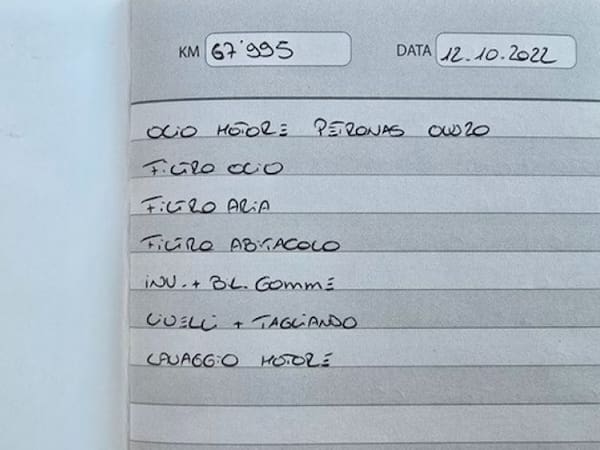 KM 67'995 DATA 12.10.2022
OLIO MOTORE PETRONAS 0W20
FILTRO OLIO
FILTRO ARIA
FILTRO ABITACOLO
INV. + BIL. GOMME
LIVELLI + TAGLIANDO
LAVAGGIO MOTORE